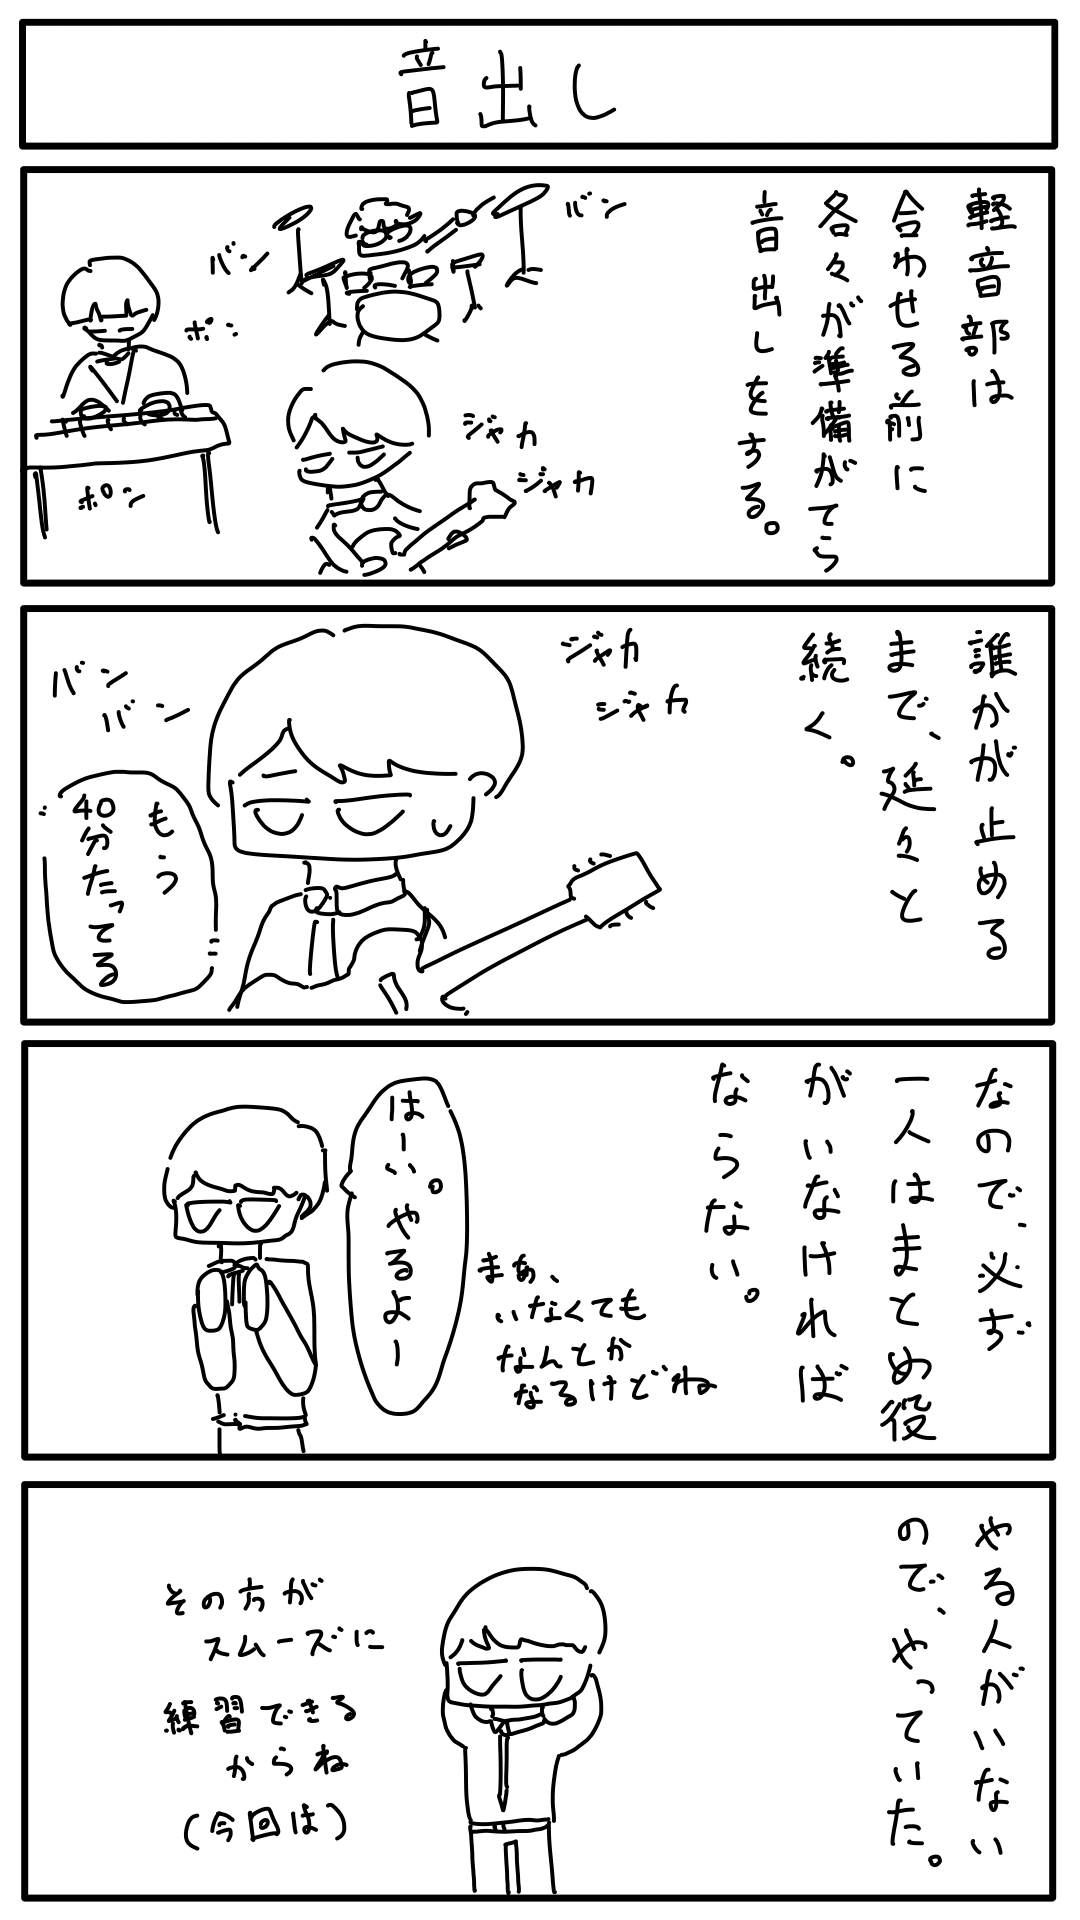 音出し
軽音部は
合わせる前に
各々が準備がてら
音出しをする。
バン
バン
ポン
ポン
ジャカ
ジャカ
誰かが止める
まで、延々と
続く。
ジャカ
ジャカ
バン
バン
もう
40分たってる
なので、必ず
一人はまとめ役
がいなければ
ならない。
まぁ、
いなくても
なんとか
なるけどね
はーい。やるよー
やる人がいない
ので、やっていた。
その方が
スムーズに
練習できる
からね
(今回は)